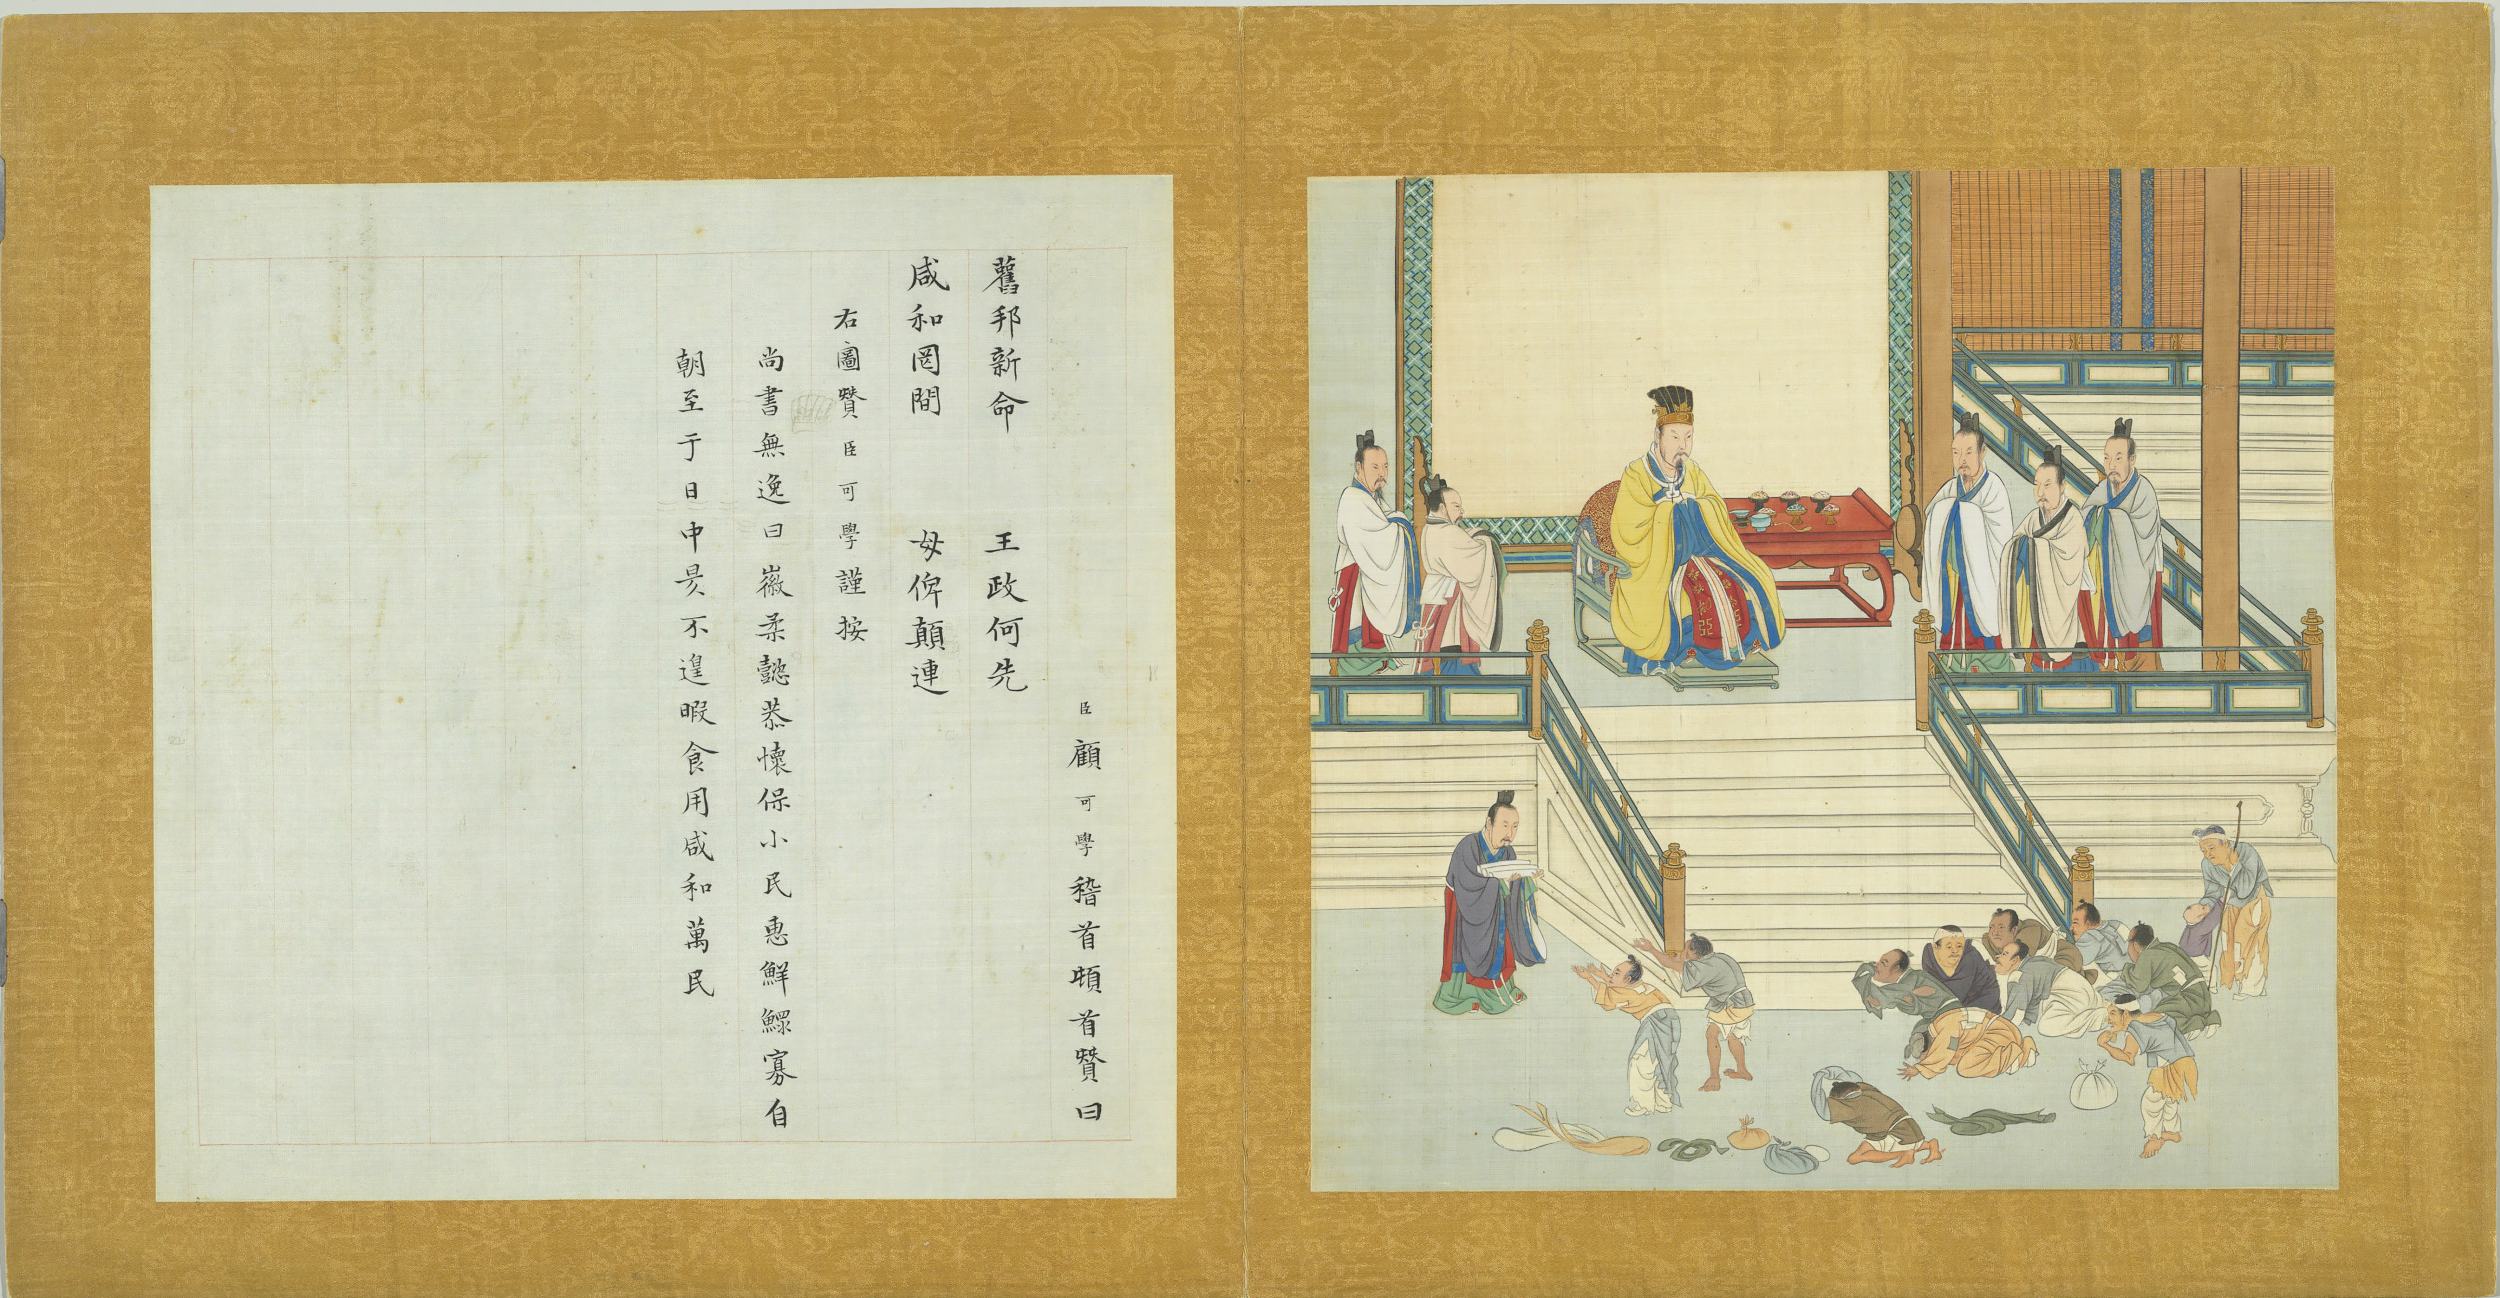 臣顧可學稽首頓首贊曰
舊邦新命 王政何先
咸和罔間 毋俾顛連
右圖贊臣可學謹按
尚書無逸曰徽柔懿恭懷保小民惠鮮鰥寡自
朝至于日中昃不遑暇食用咸和萬民